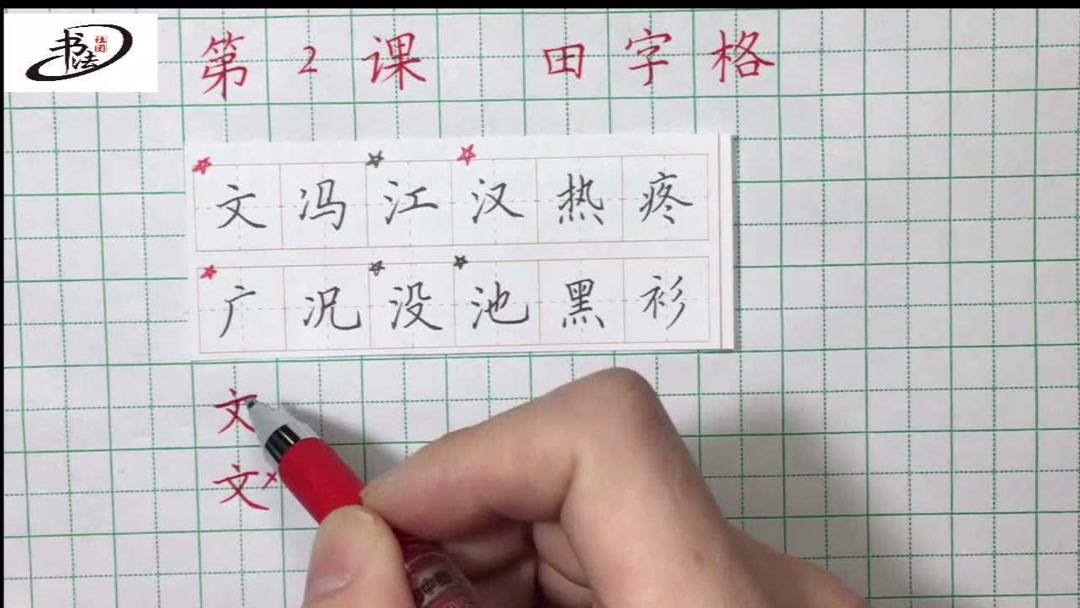 书法
社团
第2课 田字格
文冯江汉热疼
广况没池黑衫
文
文×